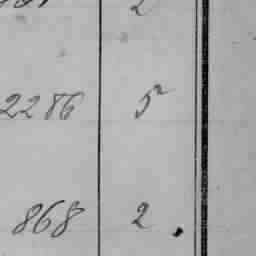 2
2286 5
868 2.